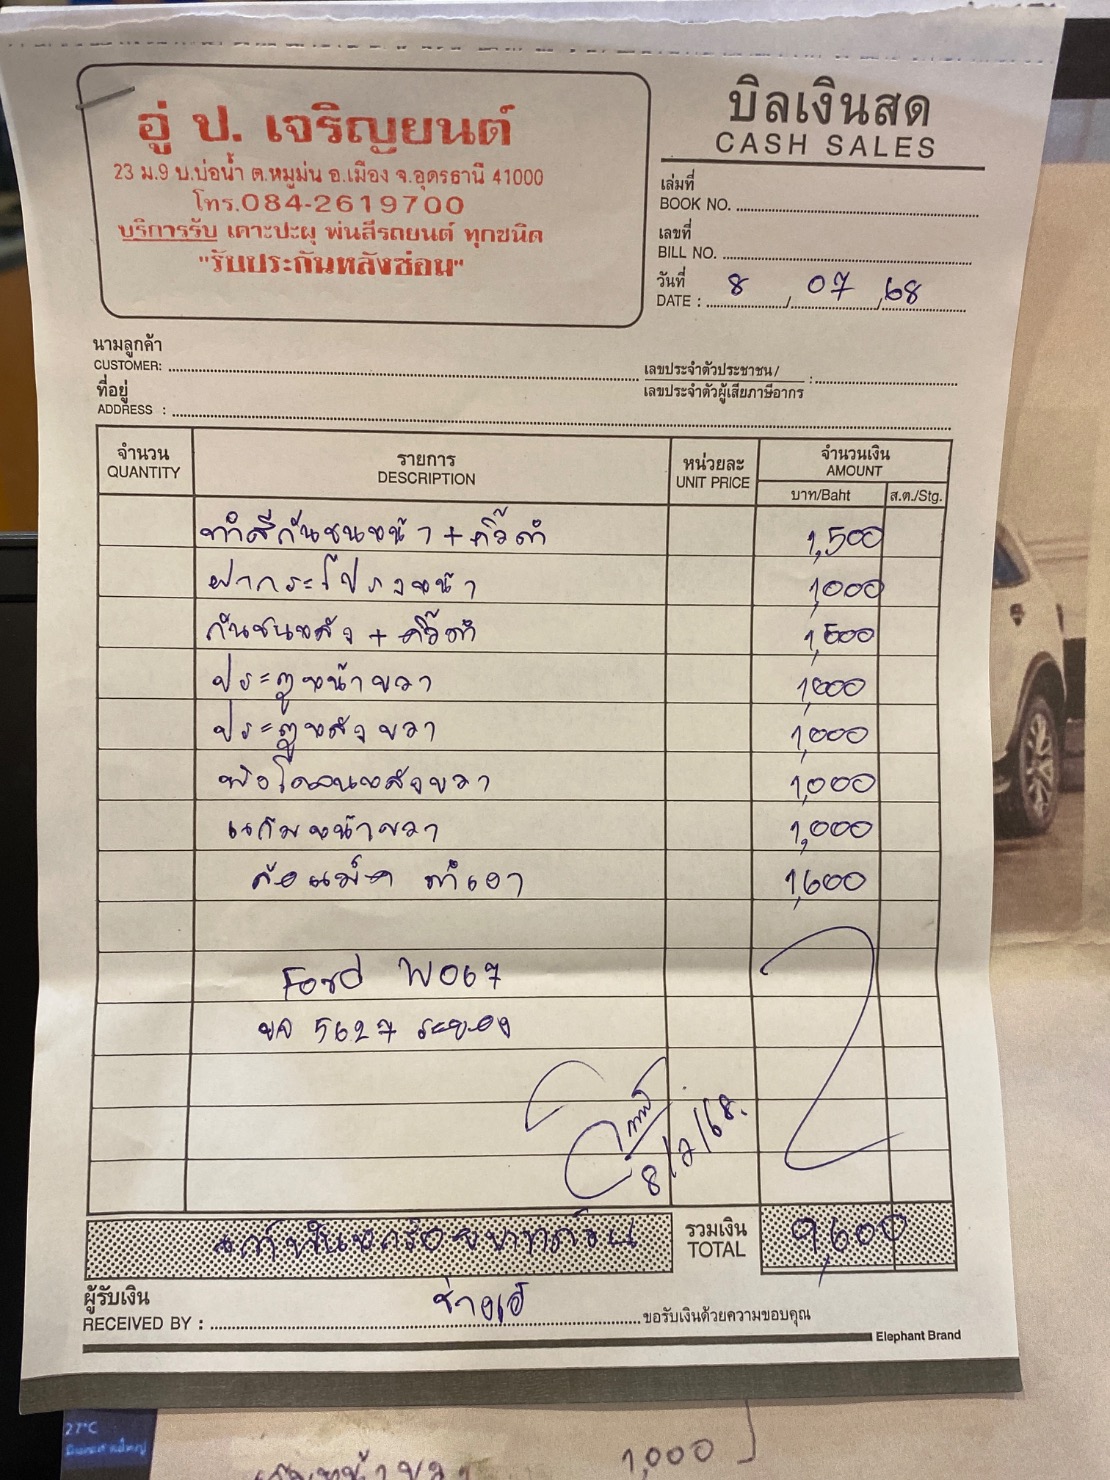 อู่ ป. เจริญยนต์
23 ม.9 บ.บ่อน้ำ ต.หมูม่น อ.เมือง จ.อุดรธานี 41000
โทร.084-2619700
บริการรับ เคาะปะผุ พ่นสีรถยนต์ ทุกชนิด
"รับประกันหลังซ่อม"
บิลเงินสด
CASH SALES
เล่มที่
BOOK NO.
เลขที่
BILL NO.
วันที่
DATE : 8 / 07 / 68
นามลูกค้า
CUSTOMER:
เลขประจำตัวประชาชน/
เลขประจำตัวผู้เสียภาษีอากร :
ที่อยู่
ADDRESS :
จำนวน รายการ หน่วยละ จำนวนเงิน
QUANTITY DESCRIPTION UNIT PRICE AMOUNT
บาท/Baht ส.ต./Stg.
ทำสีกันชนหน้า + คิ้วดำ 1,500
ฝากระโปรงหน้า 1,000
กันชนหลัง + คิ้วดำ 1,500
ประตูหน้าขวา 1,000
ประตูหลังขวา 1,000
บังโคลนหลังขวา 1,000
แก้มหน้าขวา 1,000
ล้อแม็ค ดำเงา 1,600
Ford W067
5627 ระยอง
8/7/68.
เก้าพันหกร้อยบาทถ้วน รวมเงิน 9,600
TOTAL
ผู้รับเงิน
RECEIVED BY : ช่างเอ๋ ขอรับเงินด้วยความขอบคุณ
Elephant Brand
27°C
หน้าขวา 1,000